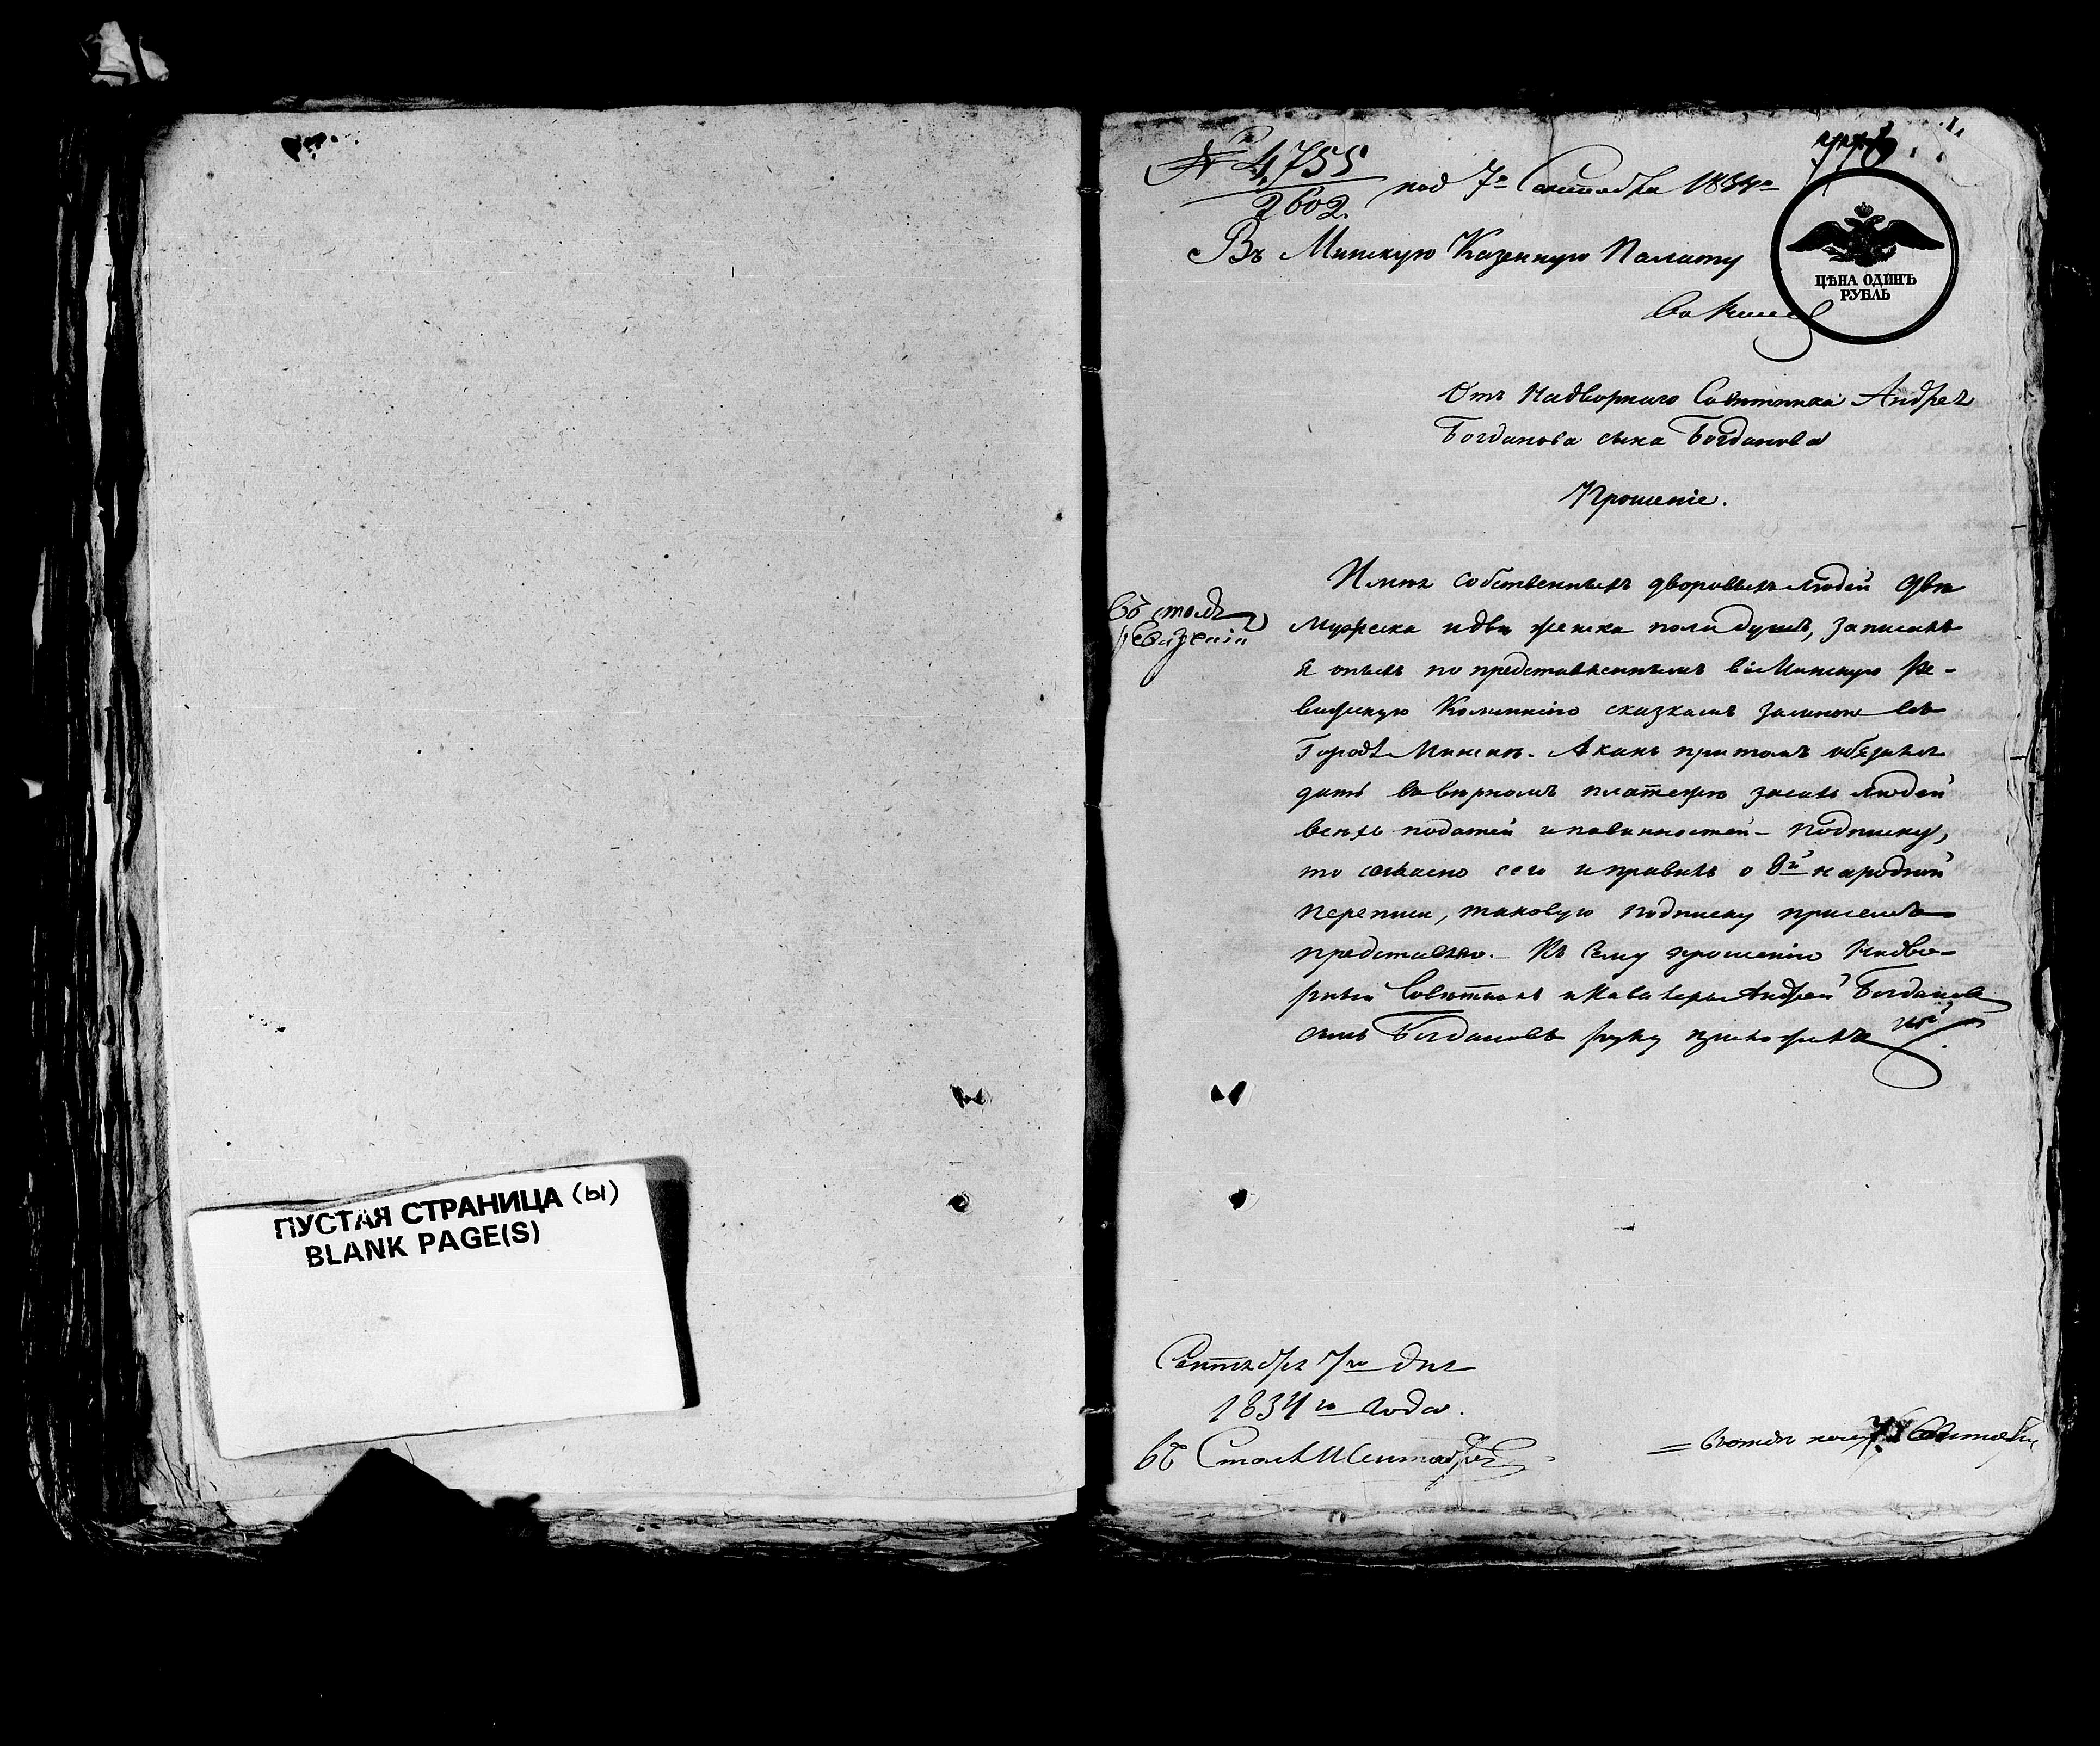 ПУСТАЯ СТРАНИЦА (Ы)
BLANK PAGE(S)
№ 4,755
2602.
7го Сентября 1834го
Въ Минскую Казенную Палату
ЦѢНА ОДИНЪ
РУБЛЬ
Отъ Надворнаго Совѣтника Андрея
Богданова сына Богданова
Прошеніе.
Имѣя собственныхъ дворовыхъ людей двѣ
мужеска и двѣ женска пола душъ, записалъ
я оныхъ по представленнымъ въ Минскую Ре-
визскую Коммисію сказкамъ за мною въ
Городѣ Минскѣ. А какъ при томъ обязанъ
дать въ вѣрномъ платежѣ за сихъ людей
всѣхъ податей и повинностей – подписку,
то согласно сего и правилъ о 8й народной
переписи, таковую подписку при семъ
представляю. – Къ сему прошенію Надво-
рный Совѣтникъ и Кавалеръ Андрей Богданов
сынъ Богдановъ руку приложилъ
Въ столъ
ревизскій
Сентября 7го дня
1834го года.
въ Столъ Сентября